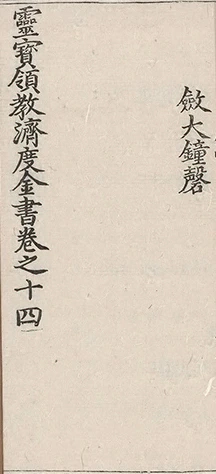 斂大鐘磬
靈寶領教濟度金書卷之十四